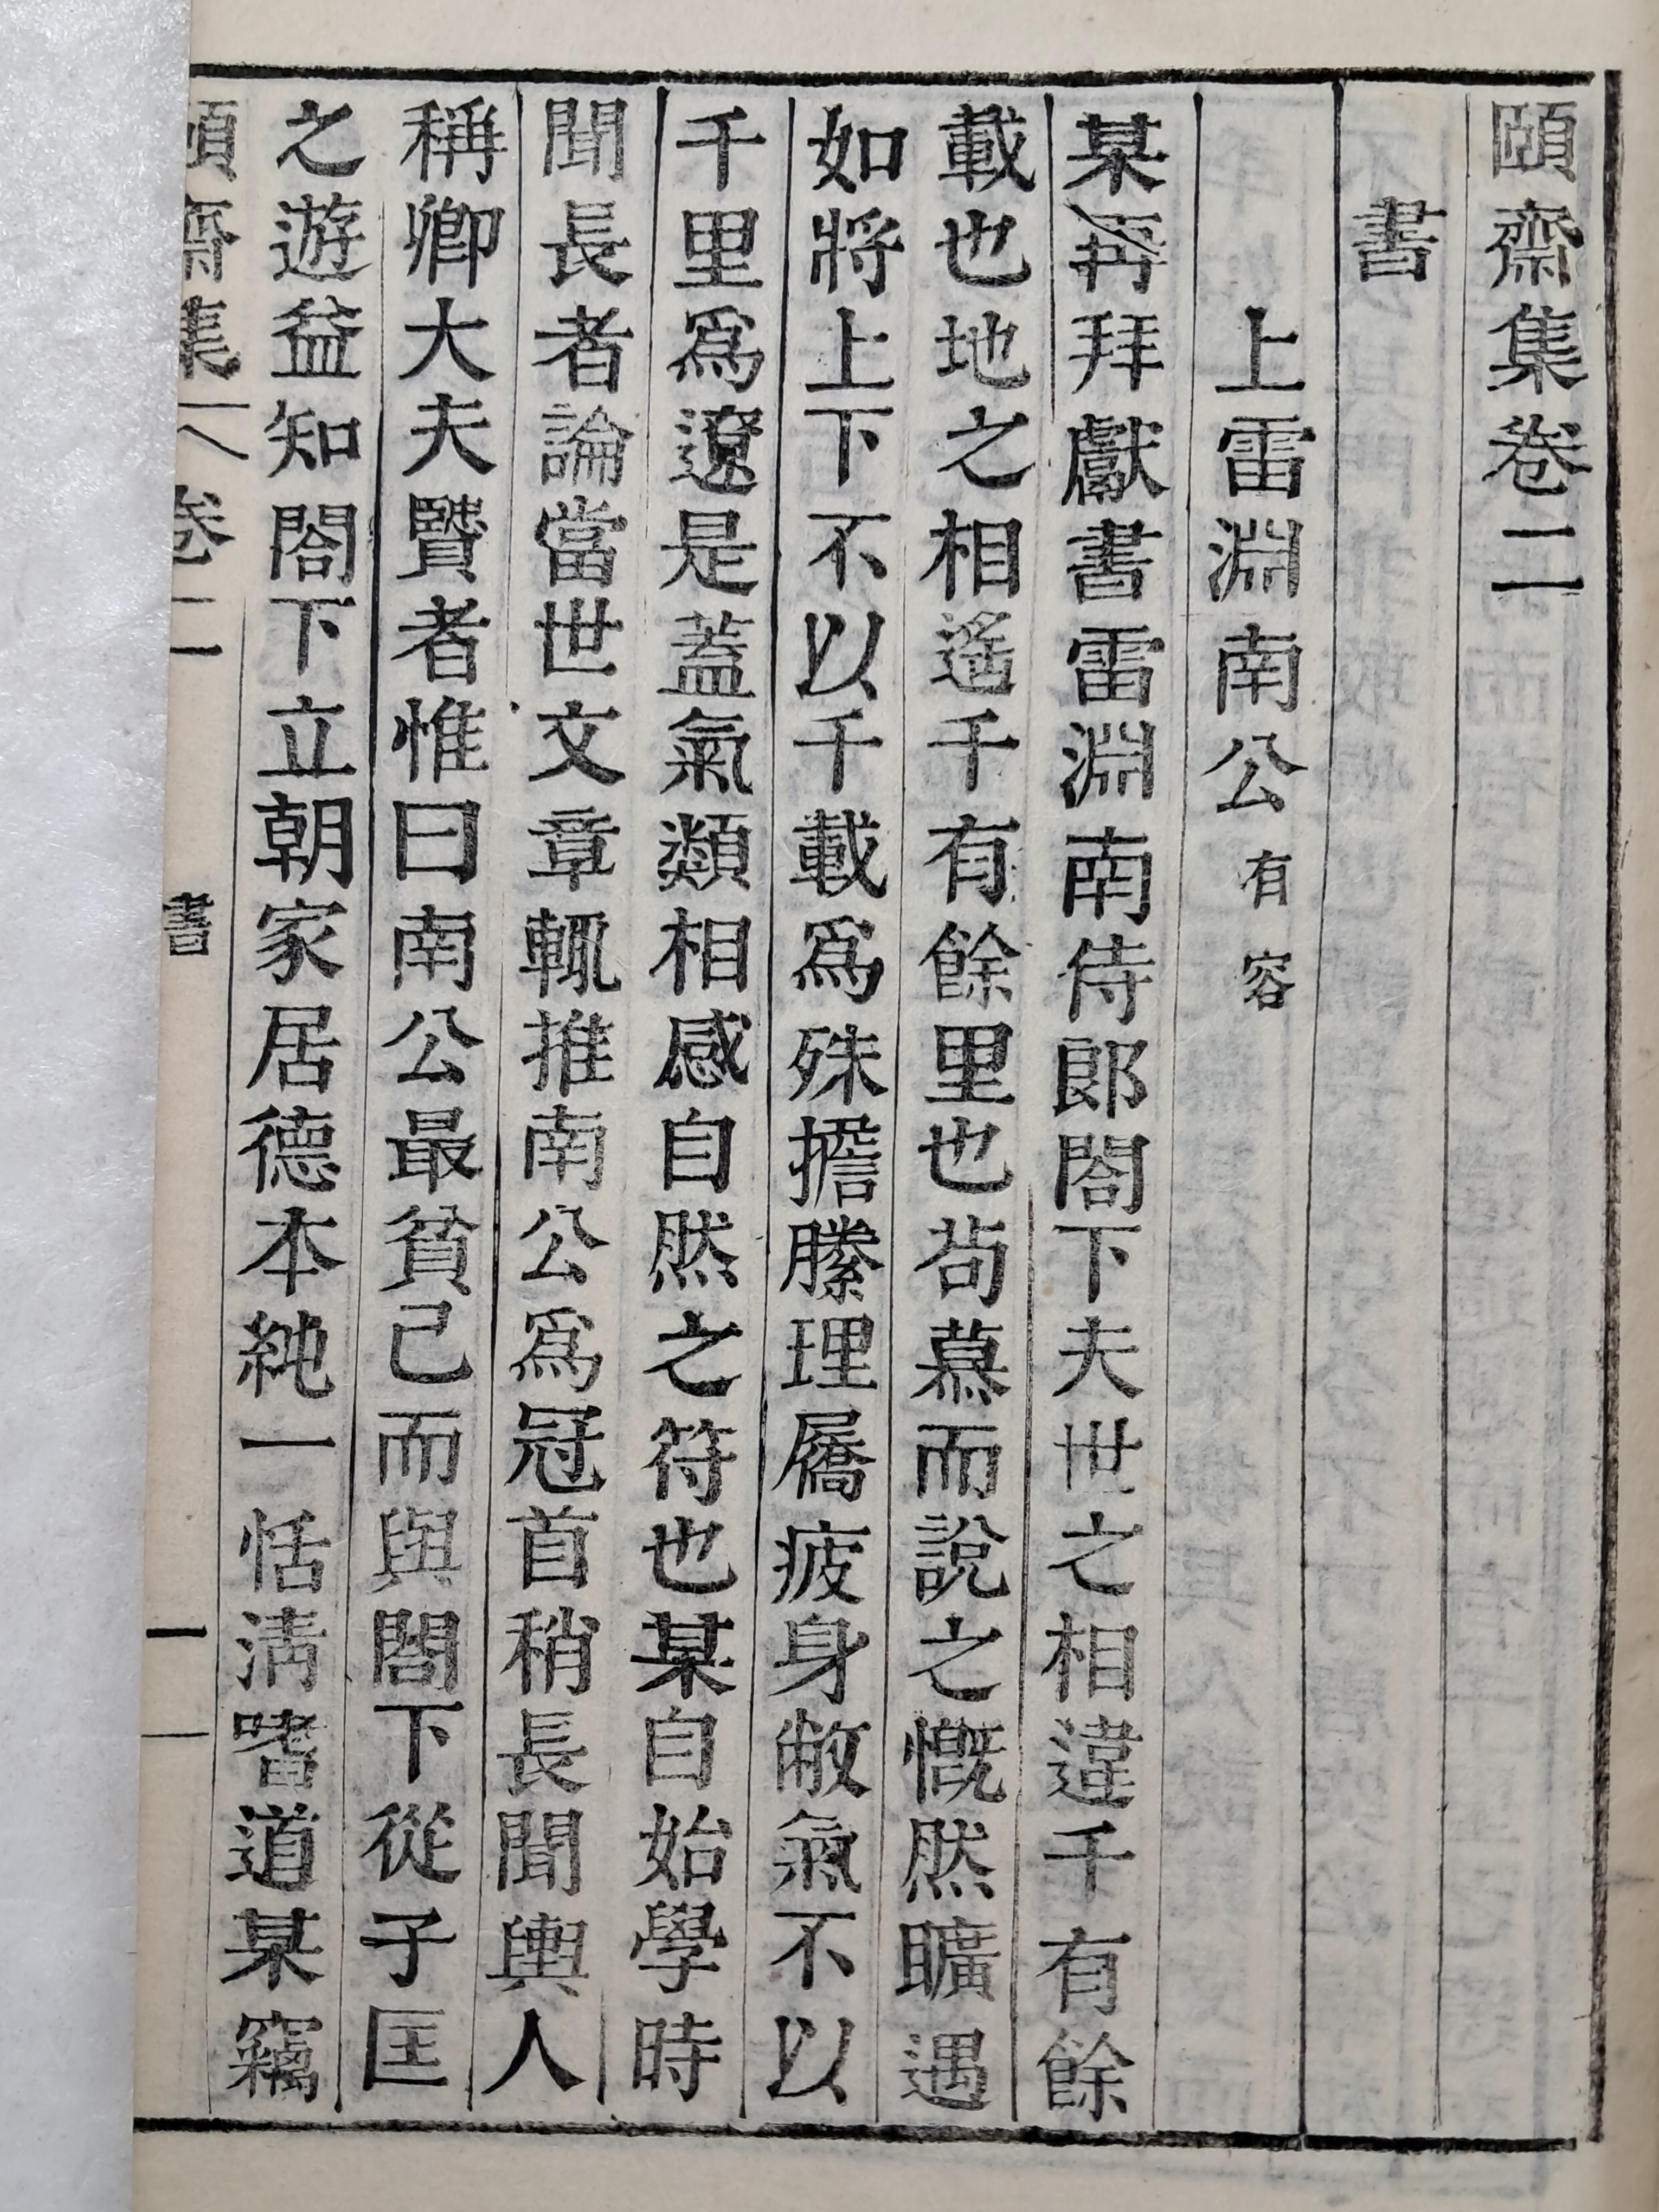 頤齋集卷二
書
上雷淵南公有容
某再拜獻書雷淵南侍郎閤下夫世之相違千有餘
載也地之相遙千有餘里也茍慕而說之慨然曠遇
如將上下不以千載爲殊擔縢理屩疲身敝氣不以
千里爲遼是蓋氣類相感自然之符也某自始學時
聞長者論當世文章輒推南公爲冠首稍長聞輿人
稱卿大夫賢者惟曰南公最貧己而與閤下從子匡
之遊益知閤下立朝家居德本純一恬淸嗜道某竊
頤齋集 卷二 書 一